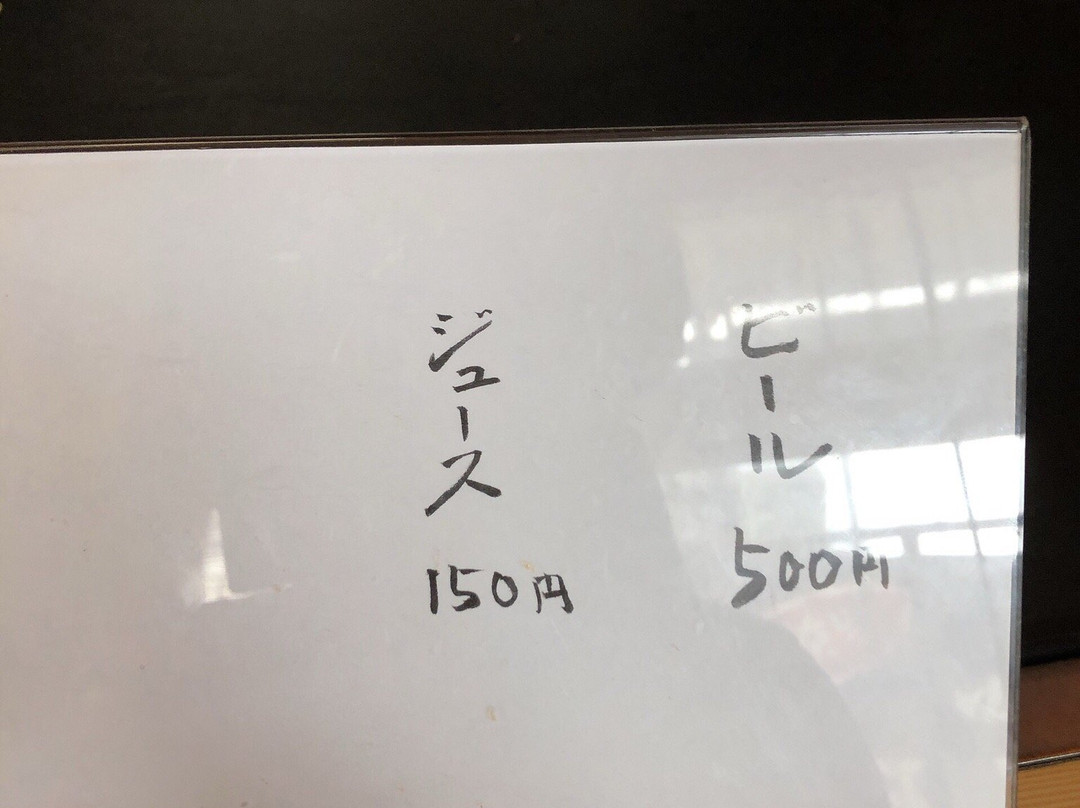 ビール
500円
ジュース
150円